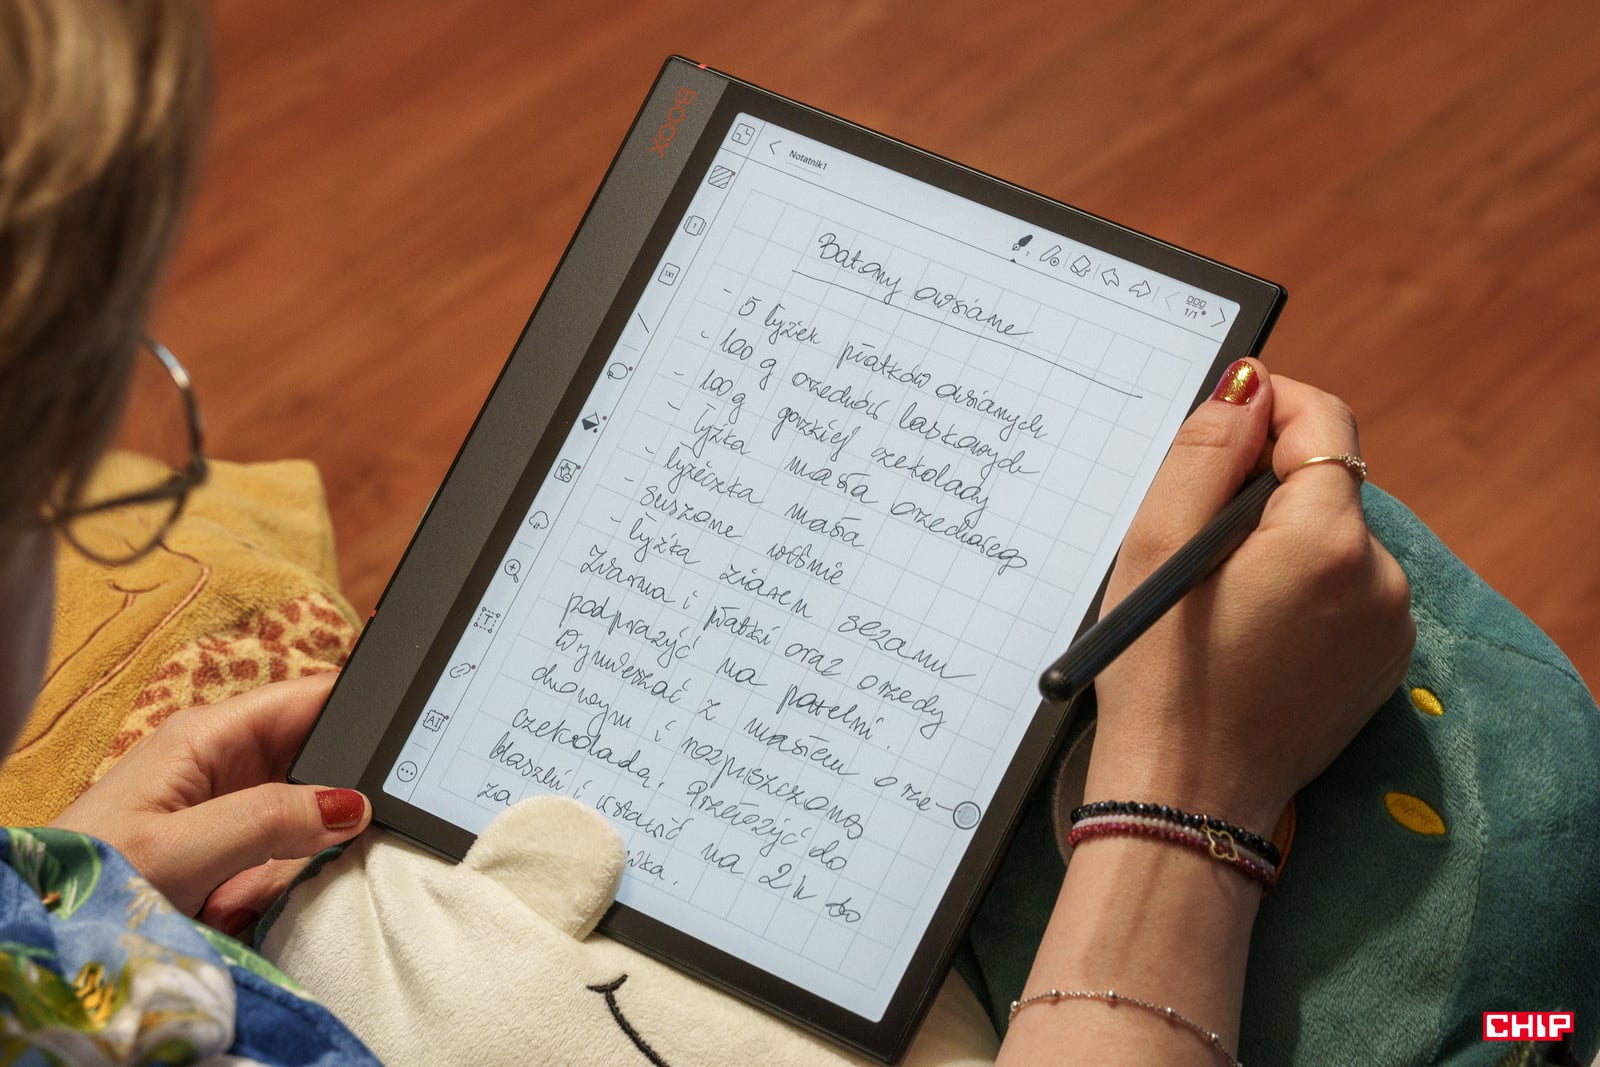 BOOX
Notatnik1
1/1
Batony owsiane
- 5 łyżek płatków owsianych
- 100 g orzechów laskowych
- 100 g gorzkiej czekolady
- łyżka masła orzechowego
- łyżeczka masła
- suszone wiśnie
- łyżka ziaren sezamu
Ziarna i płatki oraz orzechy
podprażyć na patelni.
Wymieszać z masłem orze-
chowym i rozpuszczoną
czekoladą. Przełożyć do
blaszki i wstawić na 2 h do
za
wka.
1
1x1
T
AI
CHIP